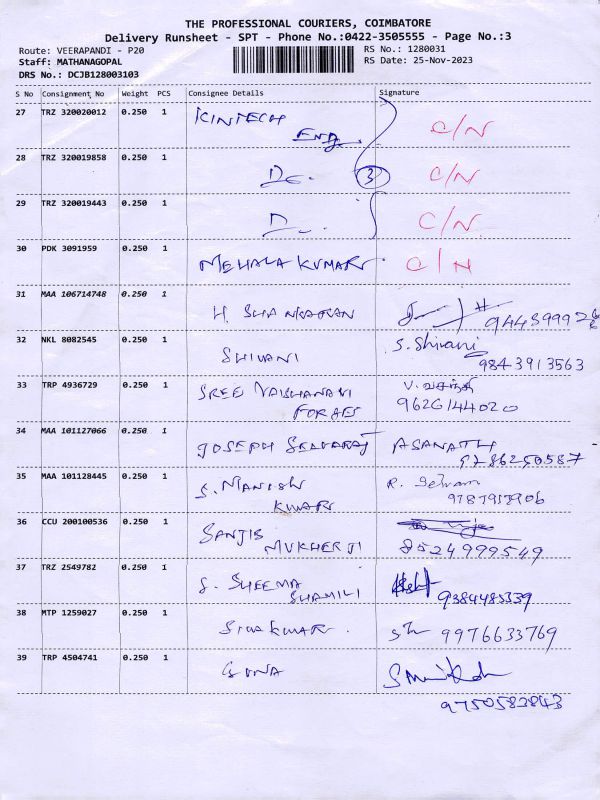 THE PROFESSIONAL COURIERS, COIMBATORE
Delivery Runsheet - SPT - Phone No.:0422-3505555 - Page No.:3
Route: VEERAPANDI - P20 RS No.: 1280031
Staff: MATHANAGOPAL RS Date: 25-Nov-2023
DRS No.: DCJB128003103
S No Consignment No Weight PCS Consignee Details Signature
27 TRZ 320020012 0.250 1 KINTECH
Eng. C/N
28 TRZ 320019858 0.250 1 Do. 3 C/N
29 TRZ 320019443 0.250 1 D C/N
30 PDK 3091959 0.250 1 MEHALA KUMAR C/N
31 MAA 106714748 0.250 1 H. SHANKARAN
32 NKL 8082545 0.250 1 SHIVANI S. Shivani
9843913563
33 TRP 4936729 0.250 1 SREE VAISHANAVI V. வசந்தி
FORGES 9626144020
34 MAA 101127066 0.250 1 JOSEPH SELVARAJ ASANATH
9786250587
35 MAA 101128445 0.250 1 S. MANISH R.
KUMAR
36 CCU 200100536 0.250 1 SANJIB
MUKHERJI 8524999549
37 TRZ 2549782 0.250 1 S. SHEEMA
SHAMILI 9384483339
38 MTP 1259027 0.250 1 SIVAKUMAR. 9976633769
39 TRP 4504741 0.250 1 GUNA
9750583843